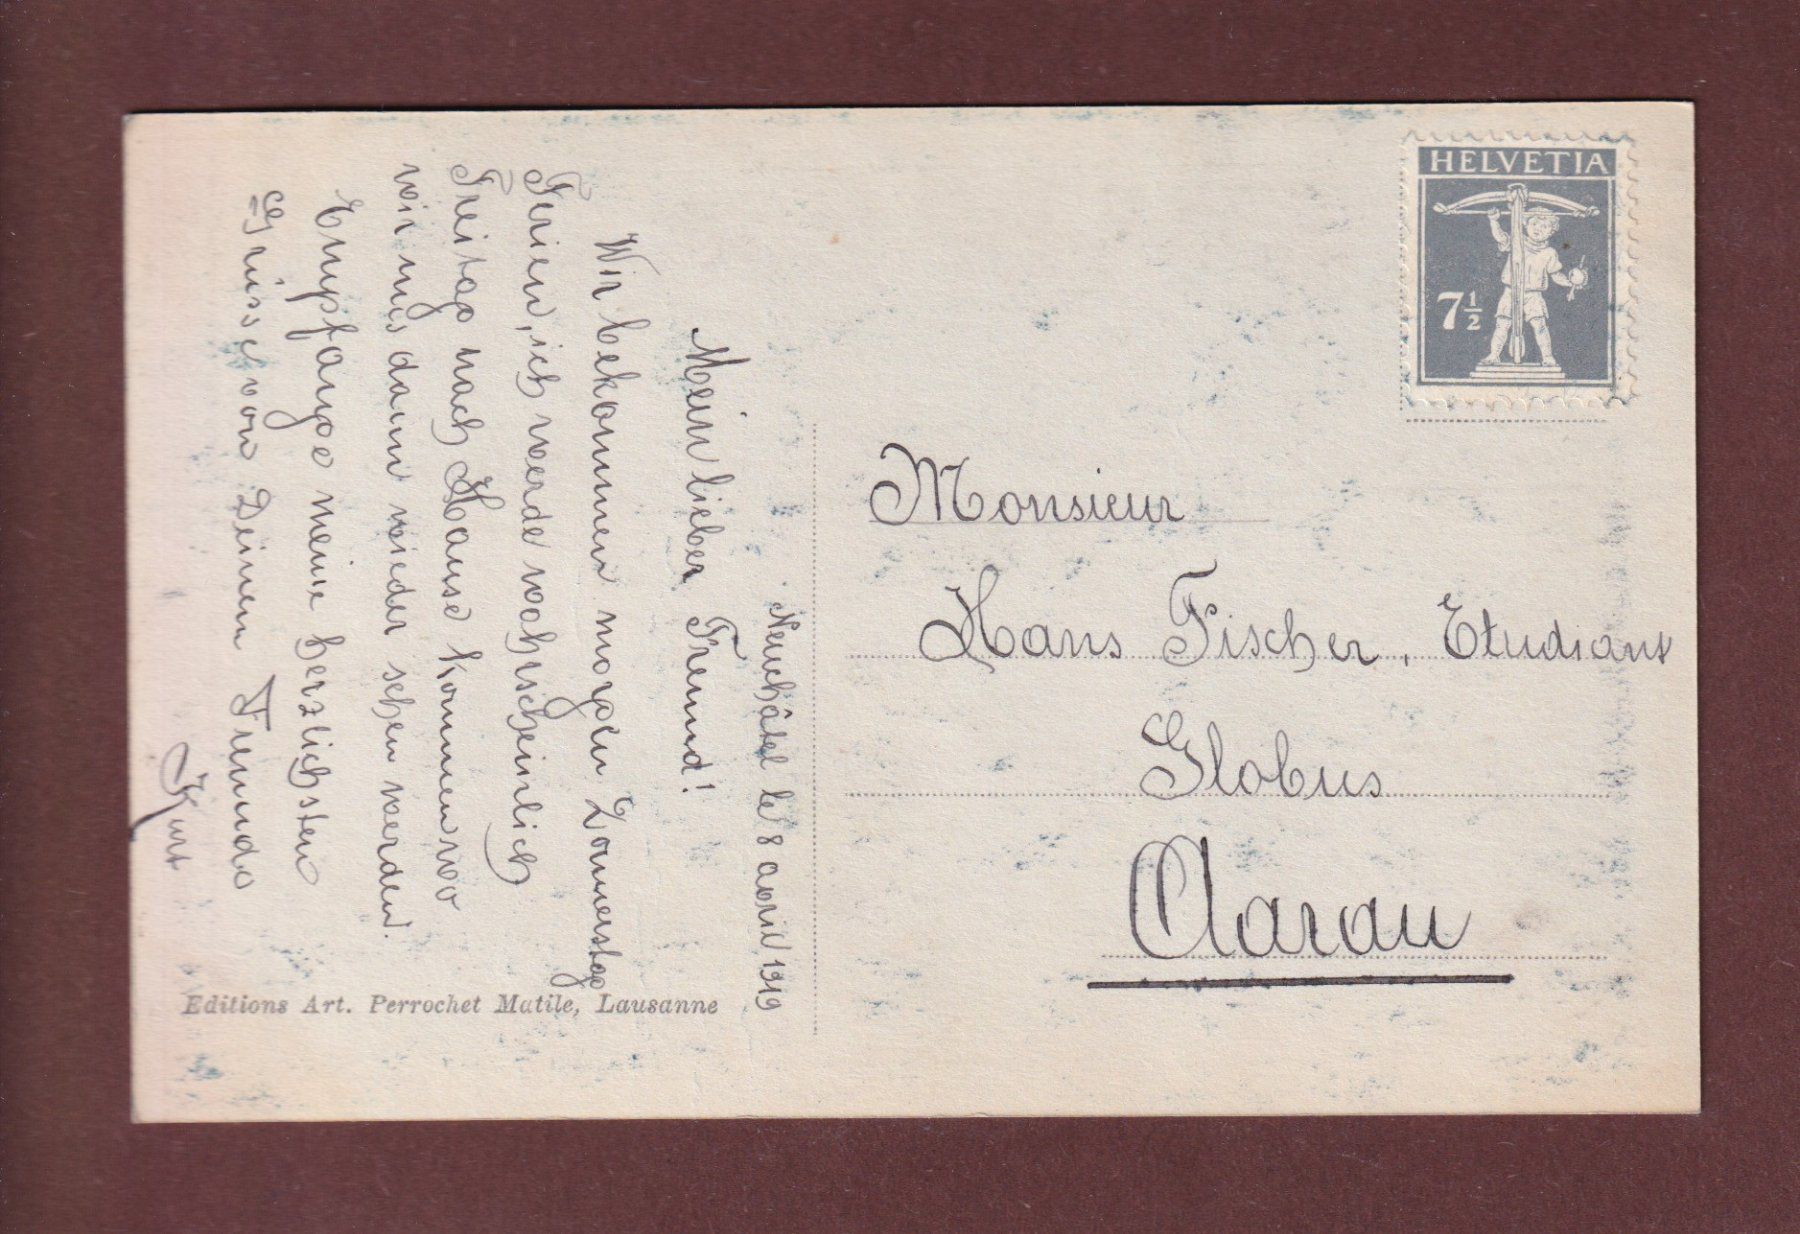 Neuchâtel le 8 avril 1919
Mein lieber Freund!
Wir bekommen morgen Donnerstag
Ferien, ich werde wahrscheinlich
Freitag nach Hause kommen wo
wir uns dann wieder sehen werden.
Empfange meine herzlichsten
Grüsse von Deinem Freunde
Kurt
Editions Art. Perrochet Matile, Lausanne
HELVETIA
7½
Monsieur
Hans Fischer, Etudiant
Globus
Aarau